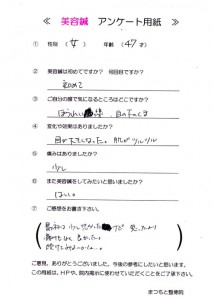 ≪ 美容鍼 アンケート用紙 ≫
① 性別 (女) 年齢 (47才)
② 美容鍼は初めてですか? 何回目ですか?
初めて
③ ご自分の顔で気になるところはどこですか?
ほうれい線、目の下のくま
④ 変化や効果はありましたか?
目が大きくなった。肌がツルツル
⑤ 痛みはありましたか?
少し
⑥ また美容鍼をしてみたいと思いましたか?
はい。
⑦ ご感想をお書き下さい。
最初は少し
ご意見、ありがとうございました。今後の参考にしたいと思います。
この用紙は、HPや、院内掲示に使わせていただくことをご了承下さい。
まつもと整骨院